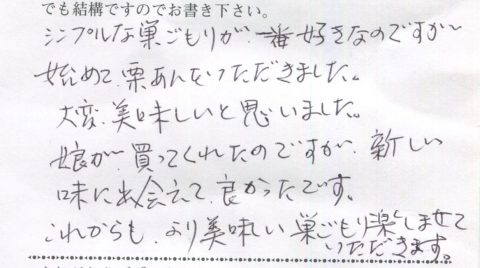 でも結構ですのでお書き下さい。
シンプルな巣ごもりが、一番好きなのですが〜
始めて、栗あんをいただきました。
大変、美味しいと思いました。
娘が、買ってくれたのですが、新しい
味に出会えて、良かったです。
これからも、より美味しい巣ごもり楽しませて
いただきます。